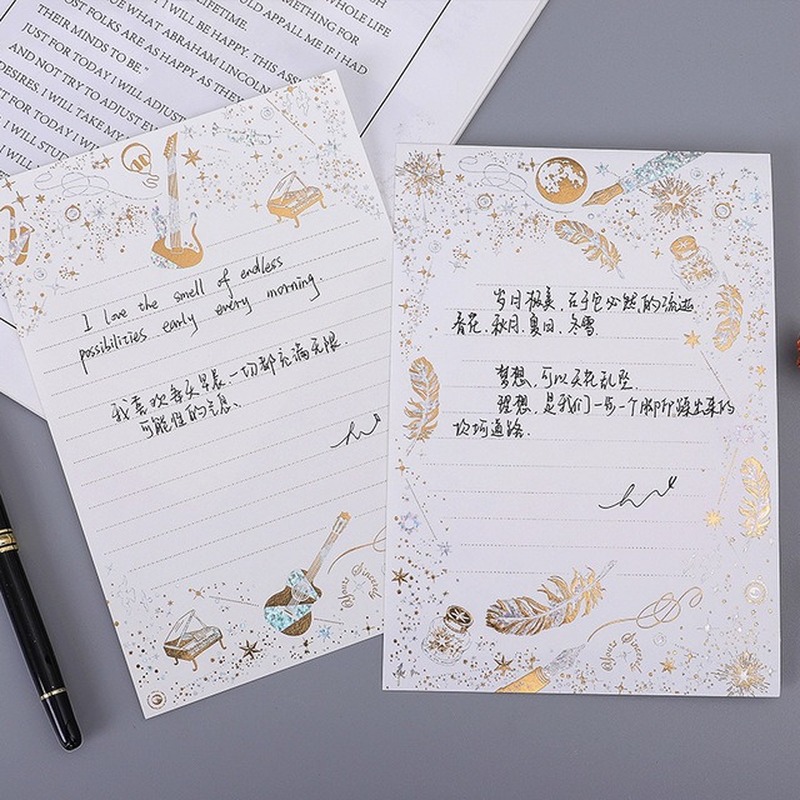 HOLE LIFE
SOMETHING FOR
OULD APPALL ME IF I HAD
I WILL BE HAPPY. THIS ASS
UE WHAT ABRAHAM LINCOLN
OST FOLKS ARE AS HAPPY AS THEY
THEIR MINDS TO BE."
JUST FOR TODAY I WILL ADJUST
AND NOT TRY TO ADJUST EV
DESIRES. I WILL TAKE MY
FOR TODAY I W
I WILL STUD
I love the smell of endless
possibilities early every morning.
我喜欢每天早晨、一切都充满无限
可能性的气息.
岁月极美,在于它必然的流逝
春花、秋月、夏日、冬雪.
梦想,可以天花乱坠.
理想,是我们一步一个脚印踩出来的
坎坷道路.